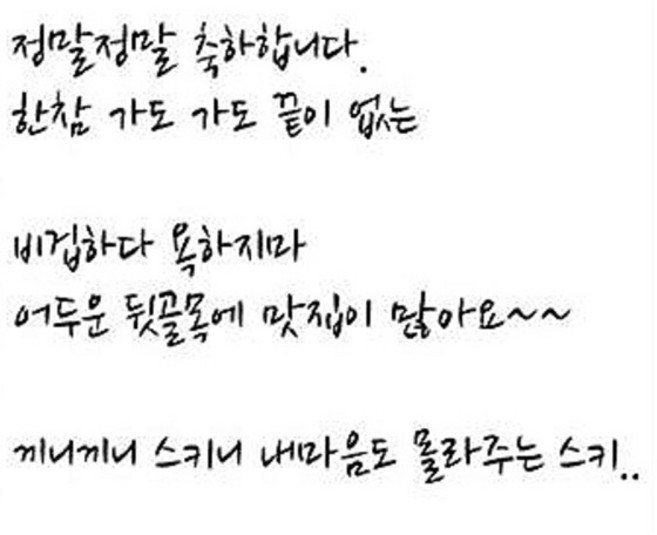 정말정말 축하합니다.
한참 가도 가도 끝이 없는
비겁하다 욕하지마
어두운 뒷골목에 맛집이 많아요~~
끼니끼니 스키니 내마음도 몰라주는 스키..